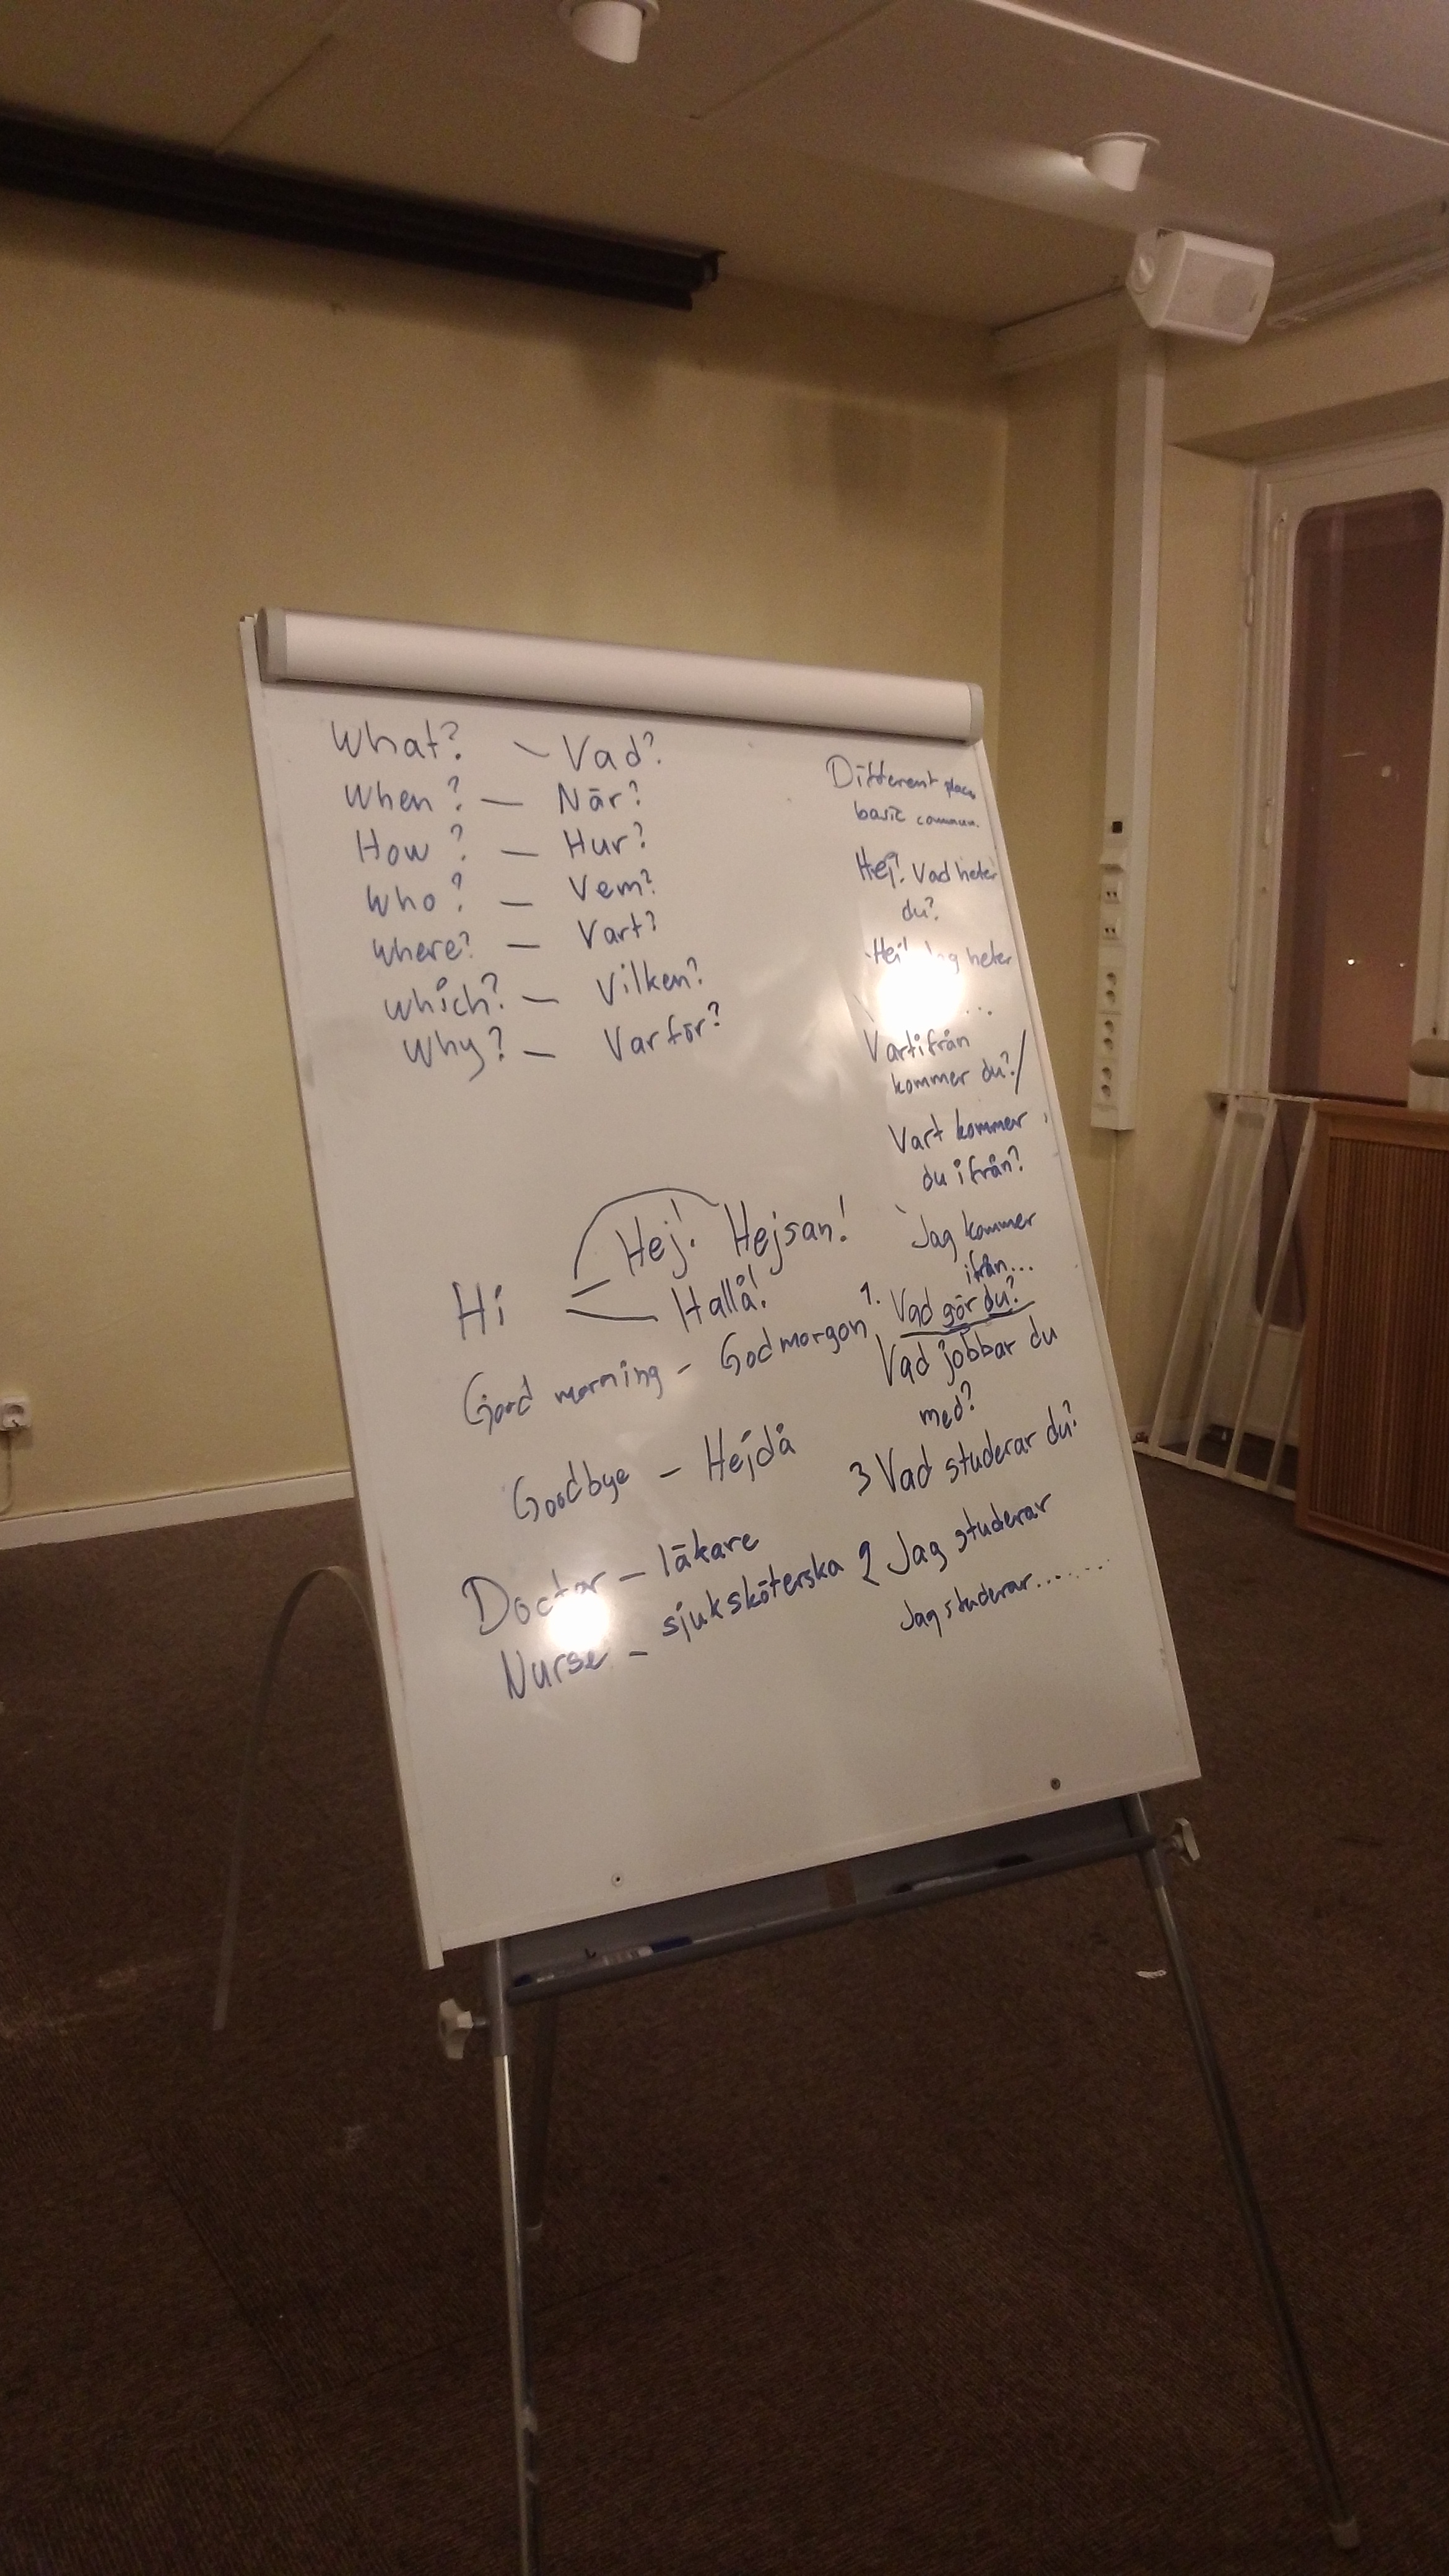 What? - Vad?
When? - När?
How? - Hur?
Who? - Vem?
where? - Vart?
which? - Vilken?
Why? - Varför?
Hi
Hej! Hejsan!
Hallå!
Good morning - Godmorgon
Goodbye - Hejdå
Doctor - läkare
Nurse - sjuksköterska
Different
basic commun.
Hej! Vad heter
du?
Hej! Jag heter
...
Vartifrån
kommer du?/
Vart kommer
du ifrån?
Jag kommer
ifrån...
1. Vad gör du?
Vad jobbar du
med?
3 Vad studerar du?
2 Jag studerar
Jag studerar........